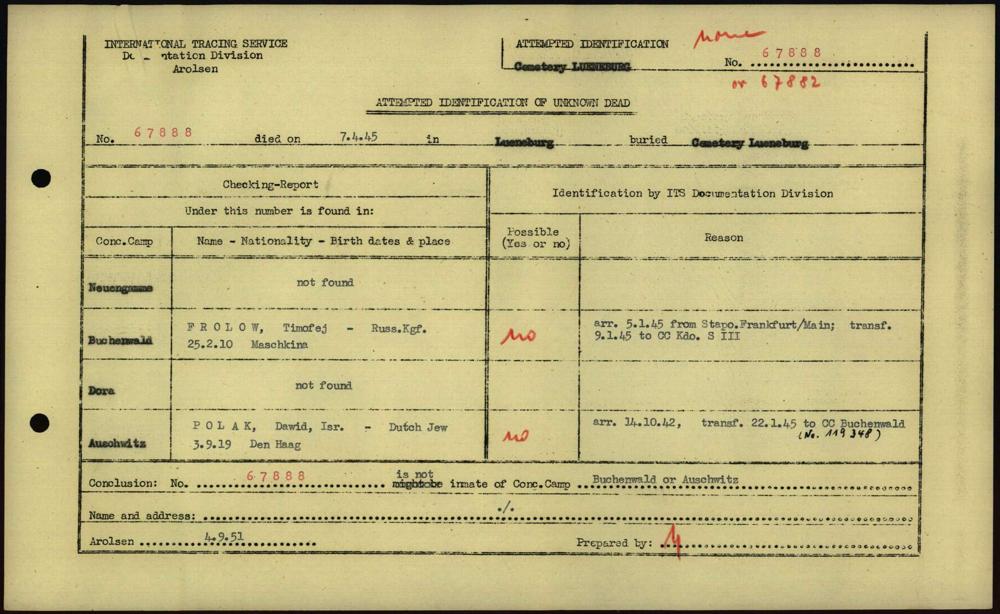 INTERNATIONAL TRACING SERVICE
Documentation Division
Arolsen
ATTEMPTED IDENTIFICATION
Cemetery LUENEBURG
None
No. 67888
or 67882
ATTEMPTED IDENTIFICATION OF UNKNOWN DEAD
No. 67888 died on 7.4.45 in Lueneburg buried Cemetery Lueneburg
Checking-Report
Under this number is found in:
Identification by ITS Documentation Division
Conc.Camp
Name - Nationality - Birth dates & place
Possible
(Yes or no)
Reason
Neuengamme
not found
Buchenwald
FROLOW, Timofej - Russ.Kgf.
25.2.10 Maschkina
no
arr. 5.1.45 from Stapo.Frankfurt/Main; transf.
9.1.45 to CC Kdo. S III
Dora
not found
Auschwitz
POLAK, Dawid, Isr. - Dutch Jew
3.9.19 Den Haag
no
arr. 14.10.42, transf. 22.1.45 to CC Buchenwald
(No. 119 348)
is not
Conclusion: No. 67888 might be inmate of Conc.Camp Buchenwald or Auschwitz
Name and address: ./.
Arolsen 4.9.51 Prepared by: